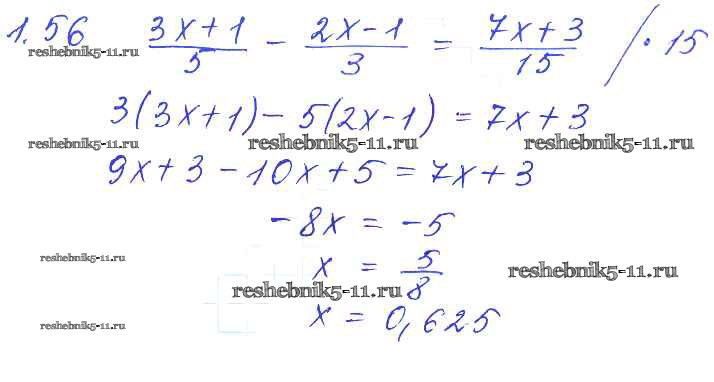 1.56 (3x+1)/5 − (2x−1)/3 = (7x+3)/15 / · 15
reshebnik5-11.ru
3(3x+1) − 5(2x−1) = 7x+3
reshebnik5-11.ru reshebnik5-11.ru reshebnik5-11.ru
9x+3 − 10x+5 = 7x+3
−8x = −5
reshebnik5-11.ru
x = 5/8
reshebnik5-11.ru
reshebnik5-11.ru
x = 0,625
reshebnik5-11.ru